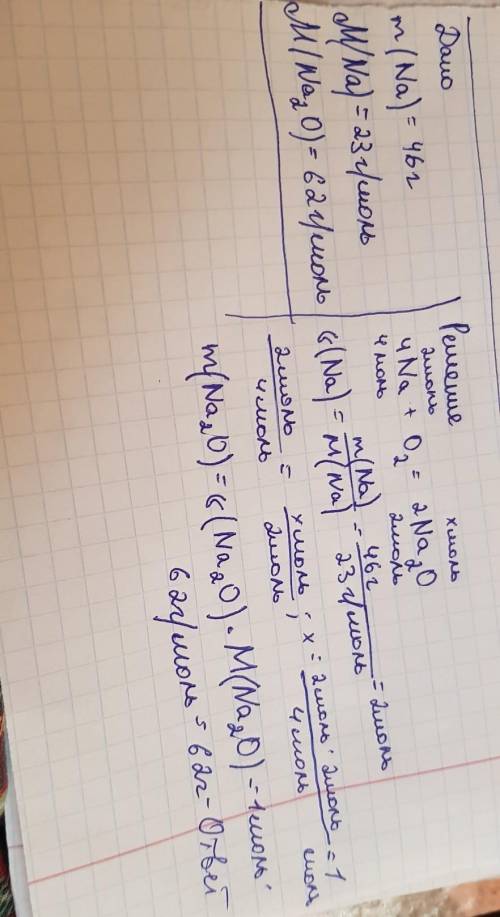 Дано
m(Na) = 46г
M(Na) = 23г/моль
M(Na₂O) = 62г/моль
Решение
2моль хмоль
4Na + O₂ = 2Na₂O
4моль 2моль
υ(Na) = m(Na)/M(Na) = 46г/23г/моль = 2моль
2моль/4моль = хмоль/2моль; x = 2моль · 2моль/4моль = 1 моль
m(Na₂O) = υ(Na₂O) · M(Na₂O) = 1моль ·
62г/моль = 62г - Ответ